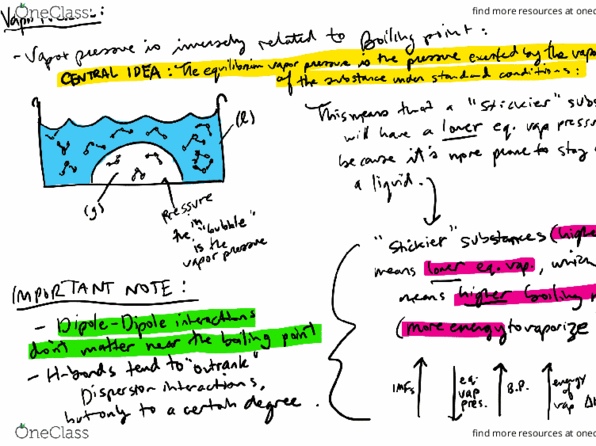 OneClass
find more resources at onec
Vapor
- Vapor pressure is inversely related to Boiling point:
CENTRAL IDEA: The equilibrium vapor pressure is the pressure exerted by the vapo
of the substance under standard conditions:
This means that a "stickier" subs
will have a lower eq. vap pressu
because it's more prone to stay
a liquid.
(l)
(g)
Pressure
in
the "bubble"
is the
vapor pressure
"Stickier" substances (highe
means lower eq. vap., which
means higher boiling
(more energy to vaporize
IMPORTANT NOTE:
- Dipole-Dipole interactions
don't matter near the boiling point
- H-bonds tend to "outrank"
Dispersion interactions,
but only to a certain degree.
IMFs
eq.
vap
pres.
B.P.
energy
of
vap
OneClass
find more resources at onec